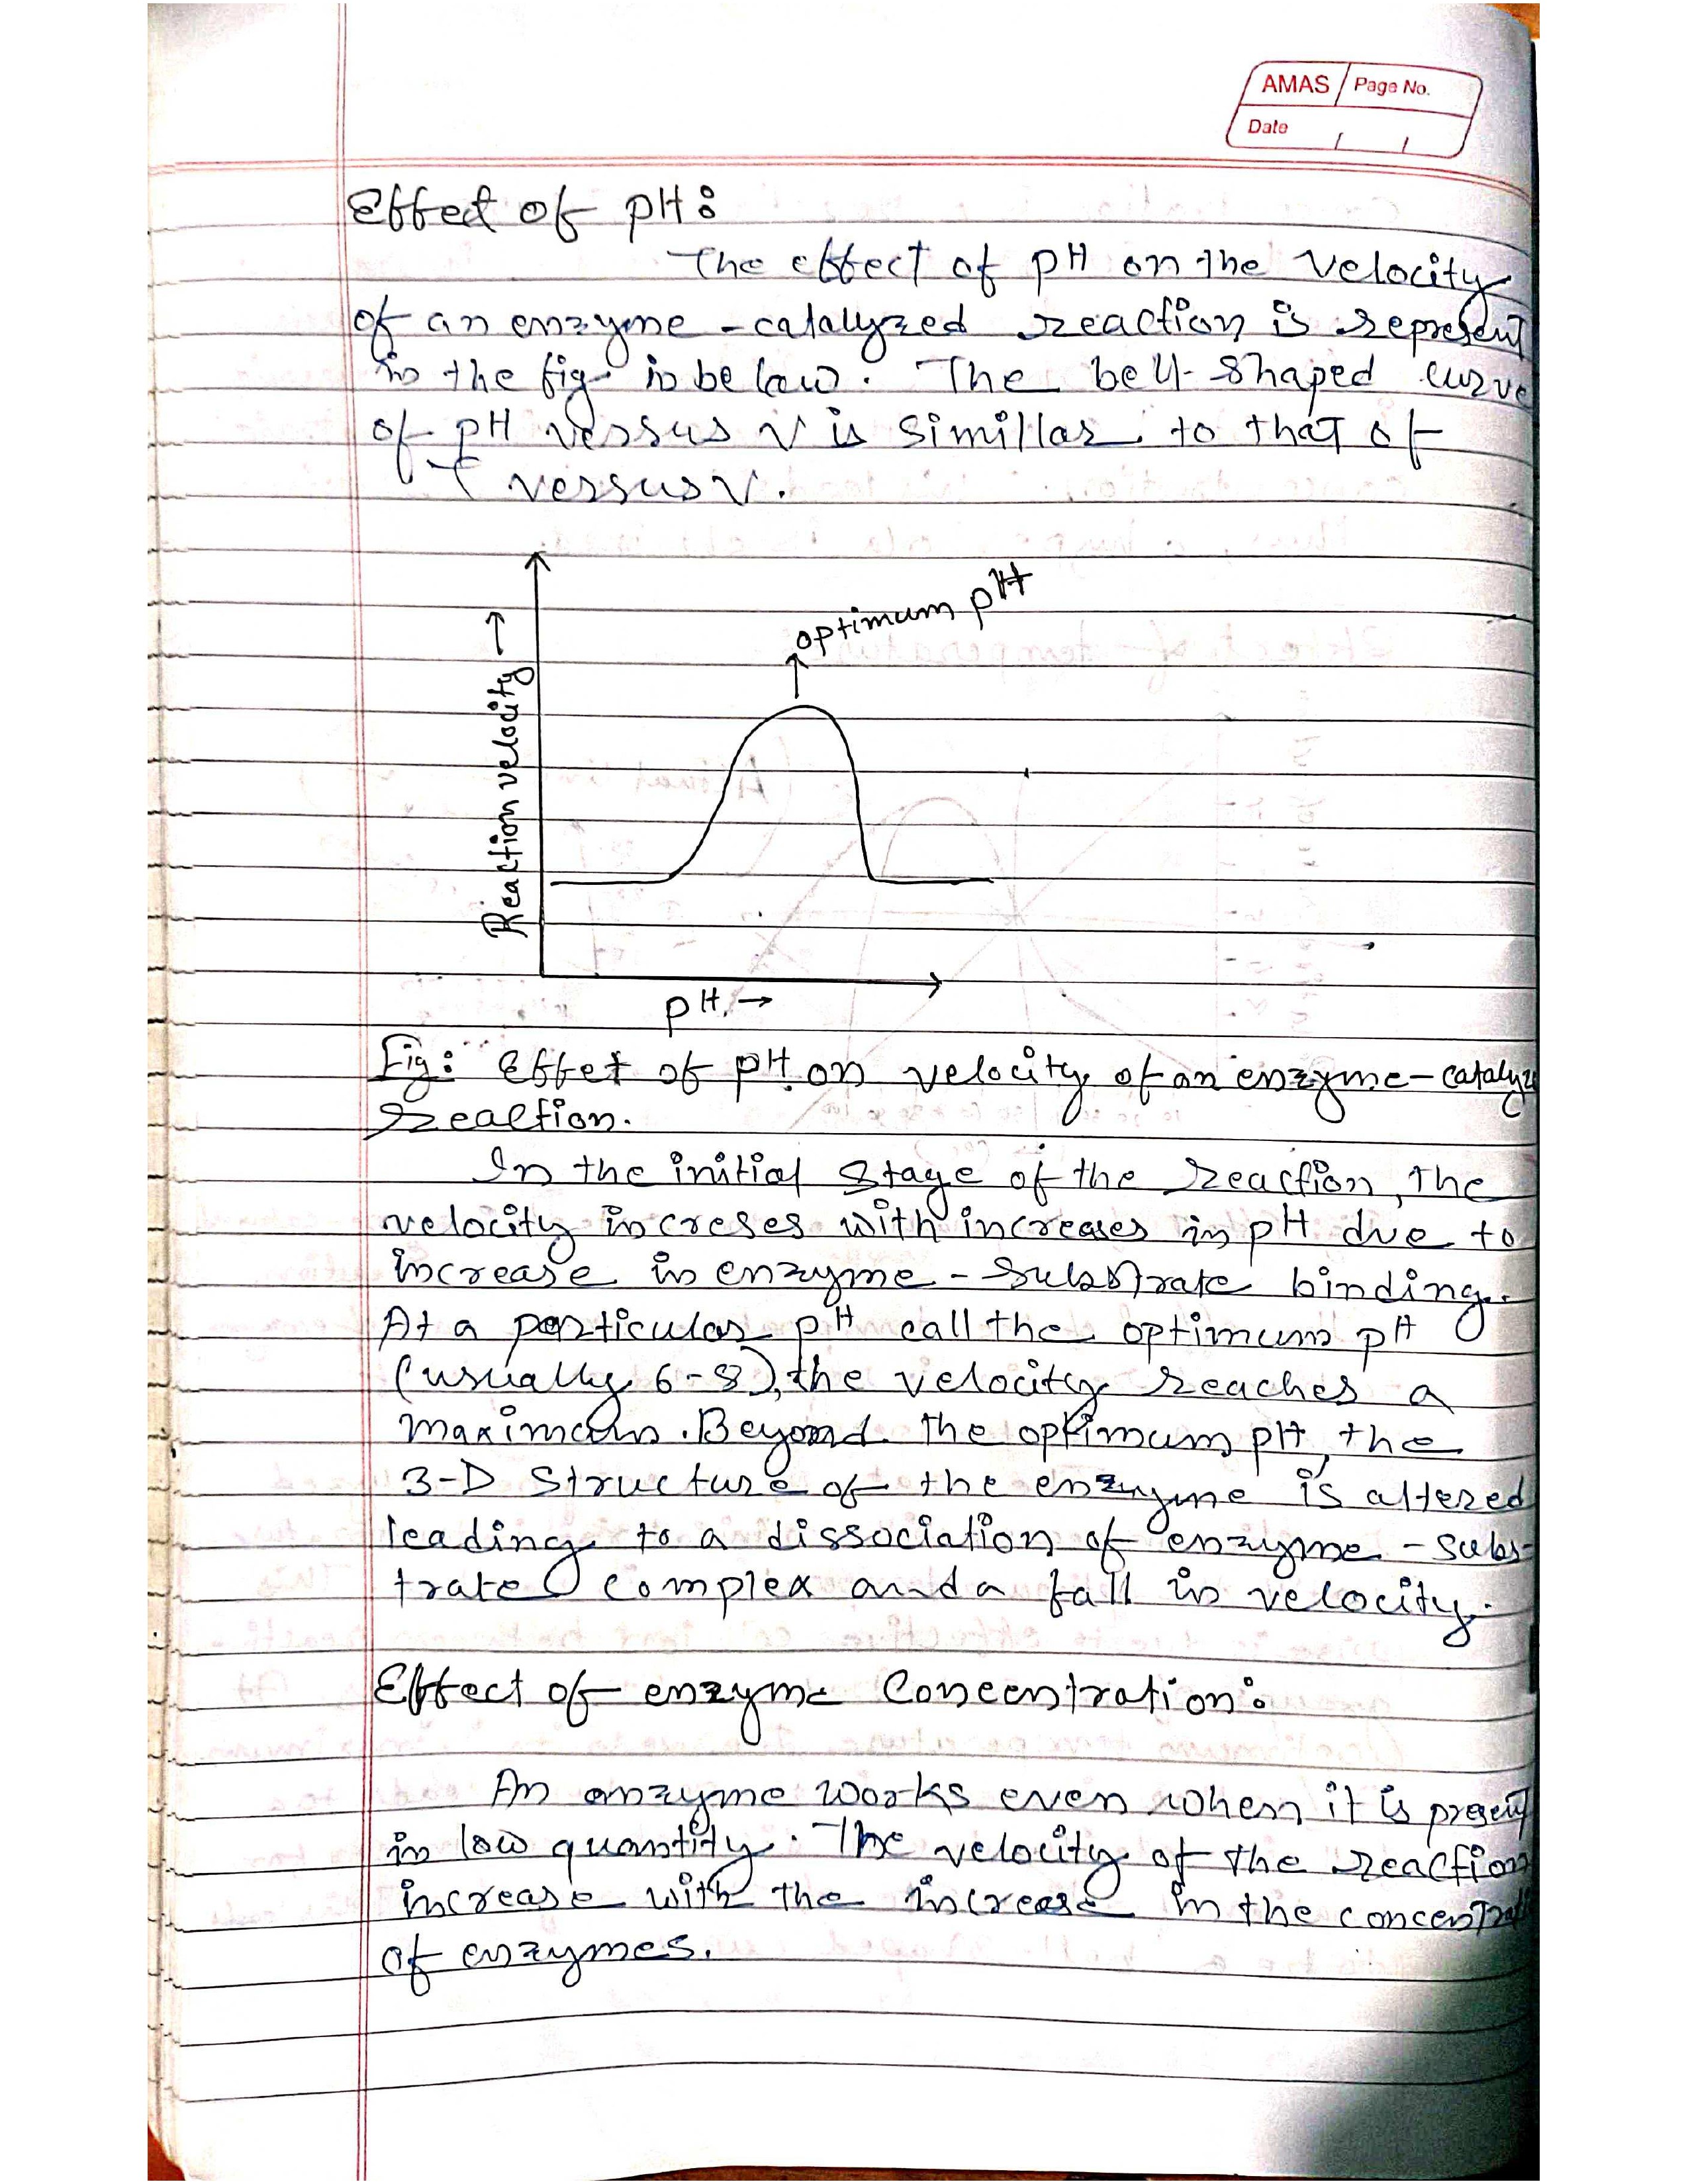 AMAS Page No.
Date / /
Effect of pH:
The effect of pH on the velocity
of an enzyme-catalyzed reaction is represent
in the fig. in below. The bell-shaped curve
of pH verssus V is simillar to that of
T verssus V.
optimum pH
Reaction velocity →
pH →
Fig: Effet of pH on velocity of an enzyme-catalyze
reaction.
In the initial stage of the reaction, the
velocity increses with increases in pH due to
increase in enzyme-substrate binding.
At a particular pH call the optimum pH
(usually 6-8), the velocity reaches a
maximum. Beyond the optimum pH, the
3-D structure of the enzyme is altered
leading to a dissociation of enzyme-subs-
trate complex and a fall in velocity.
Effect of enzyme Concentration:
An enzyme works even when it is present
in low quantity. The velocity of the reaction
increase with the increase in the concentrati
of enzymes.